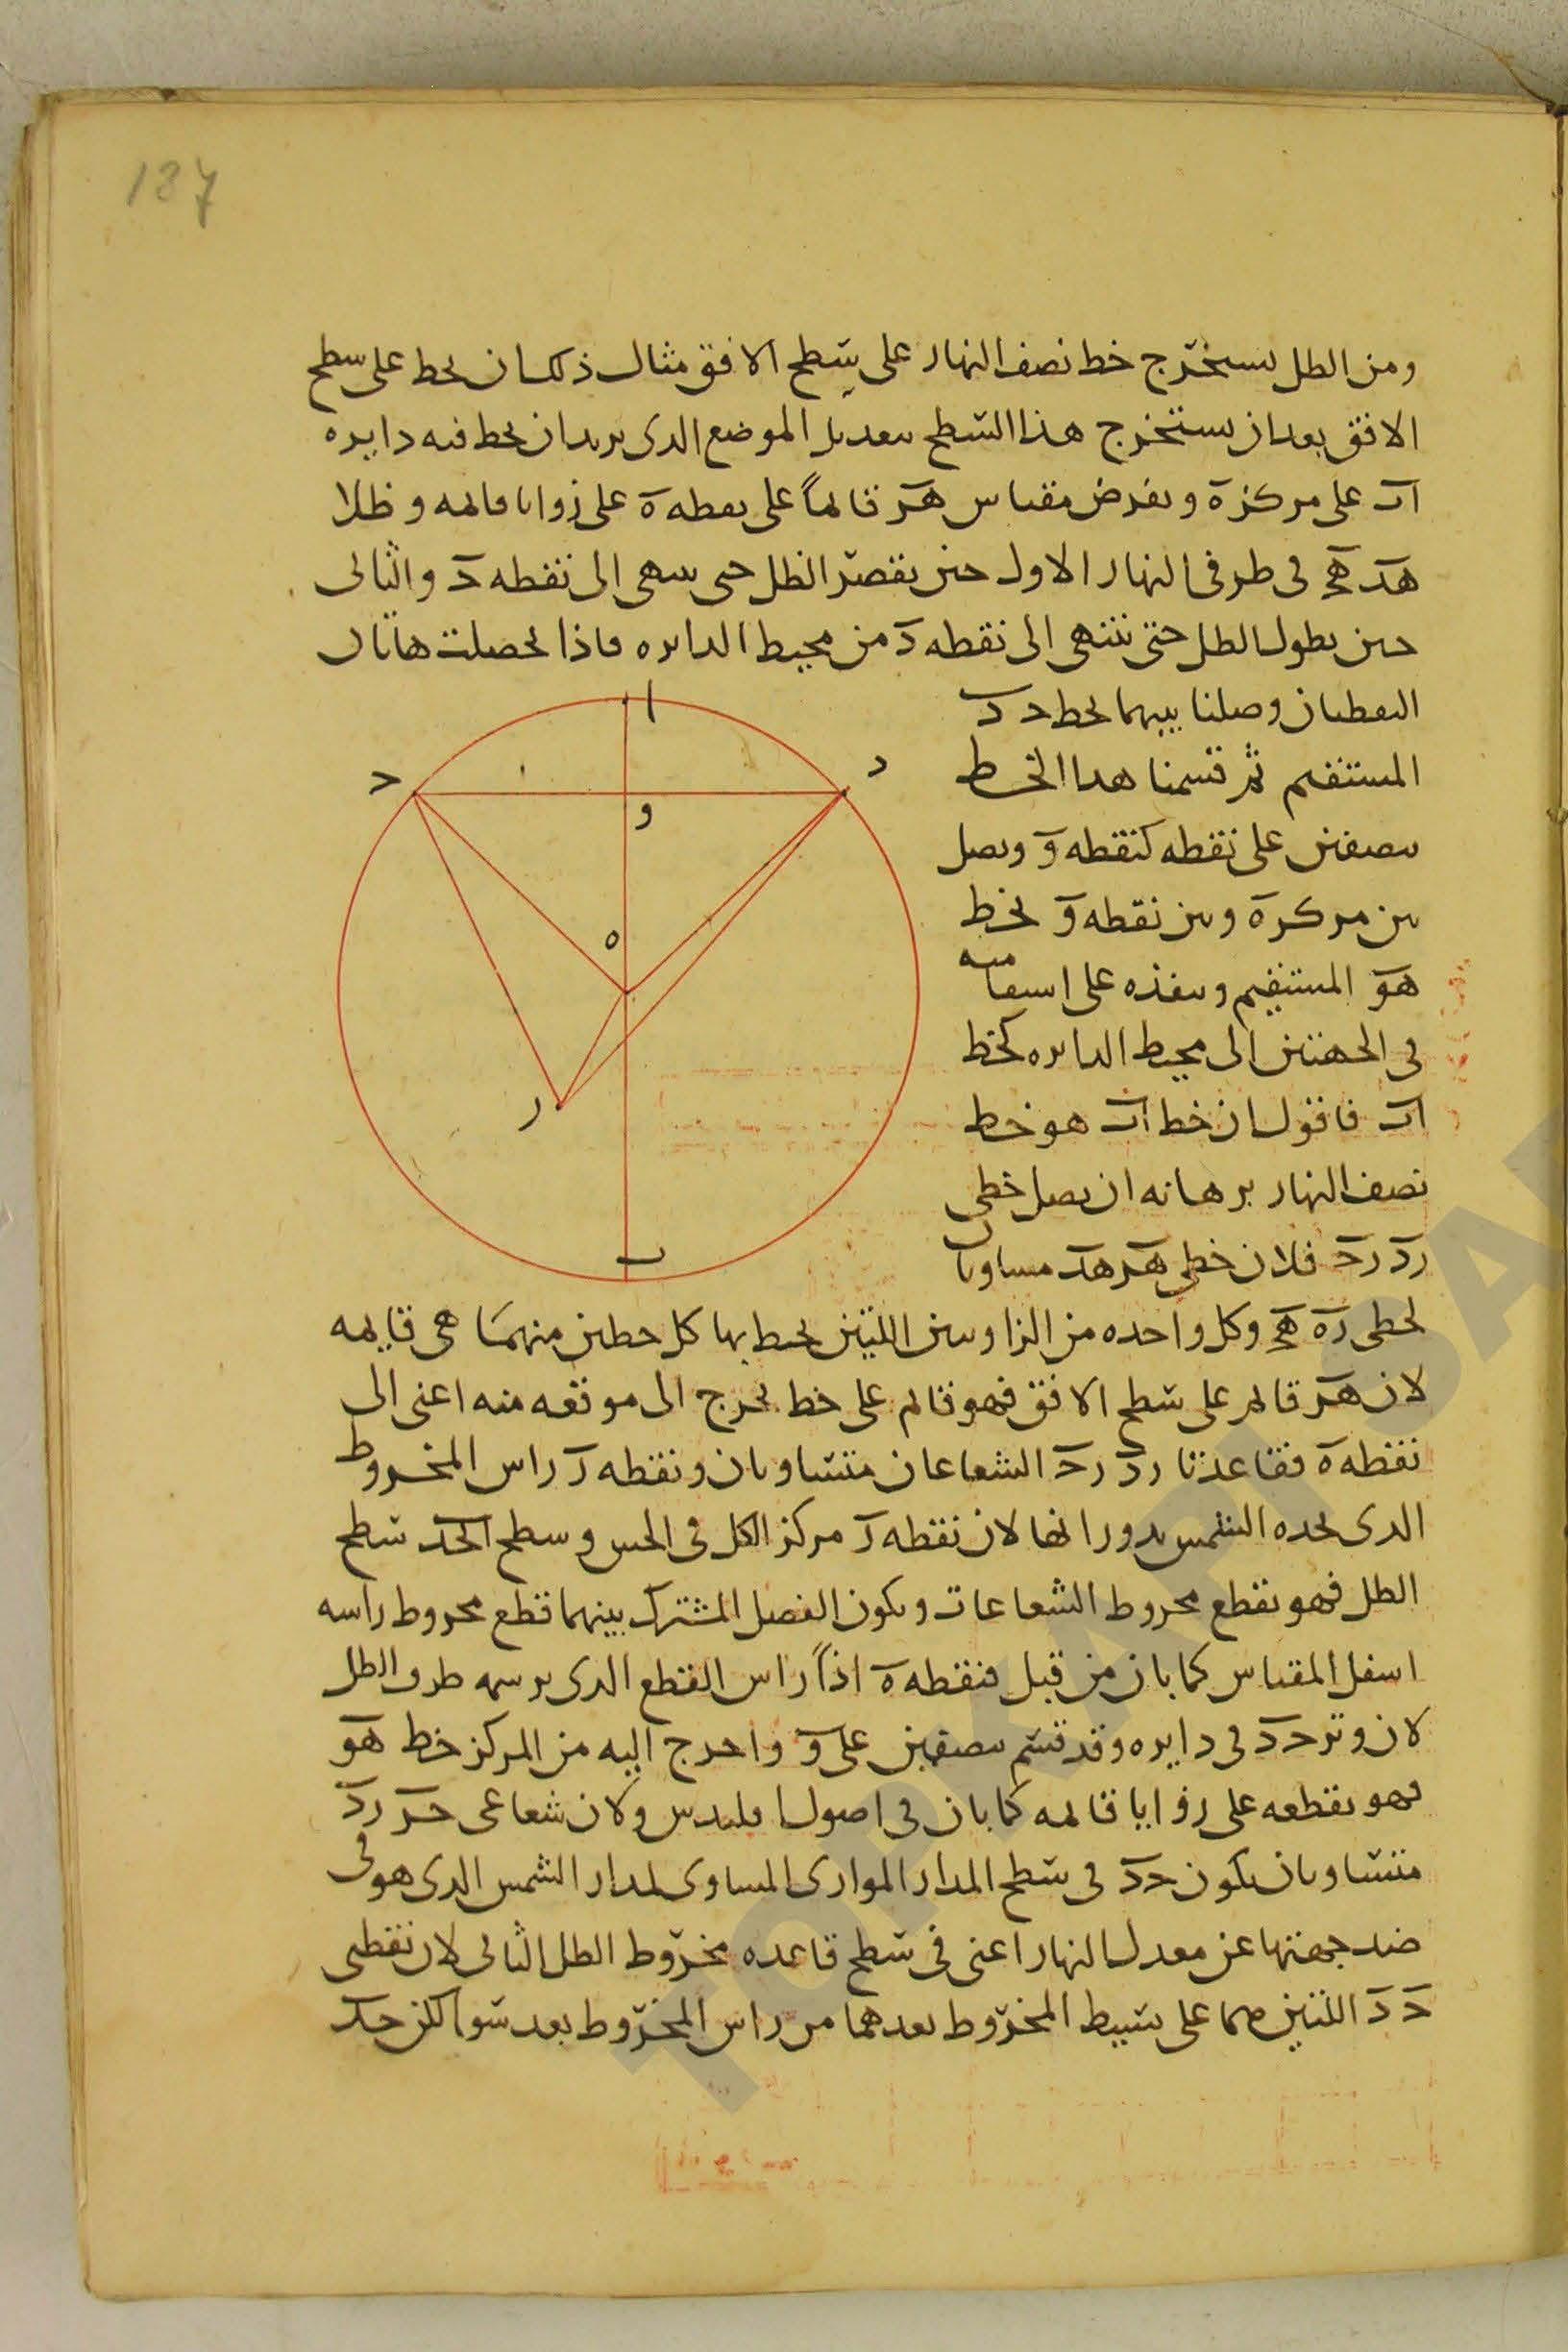 187
ومن الظل يستخرج خط نصف النهار على سطح الافق مثال ذلك ان نخط على سطح
الافق بعد ان يستخرج هذا السطح بعديل الموضع الذى يريد ان نخط فيه دايره
اب على مركز ه ونفرض مقياس هر قائماً على نقطه ه على زوايا قائمه وظلا
هد هج فى طرفى النهار الاول حين يقصر الظل حتى ينتهى الى نقطه ح والثانى
حين يطول الظل حتى ينتهى الى نقطه د من محيط الدايره فاذا تحصلت هاتان
النقطتان وصلنا بينهما بخط ح د
المستقيم ثم قسمنا هذا الخط
بنصفين على نقطه كنقطه و ونصل
بين مركز ه وبين نقطه و بخط
هو المستقيم وننفذه على استقامته
فى الجهتين الى محيط الدايره كخط
اب فاقول ان خط اب هو خط
نصف النهار برهانه ان نصل خطى
رد رح فلان خطى هر هد مساويان
لخطى ره هج وكل واحده من الزاويتين اللتين يحيط بها كل خطين منهما هى قايمه
لان هر قائم على سطح الافق فهو قائم على خط يخرج الى موقعه منه اعنى الى
نقطه ه فقاعدتا رد رح الشعاعان متساويان ونقطه ر راس المخروط
الذى تحده الشمس بدورانها لان نقطه ر مركز الكل فى الحس وسطح احد سطح
الظل فهو يقطع مخروط الشعاعات ويكون الفصل المشترك بينهما قطع مخروط راسه
اسفل المقياس كما بان من قبل فنقطه ه اذاً راس القطع الذى يرسمه طرف الظل
لان وتر ح د فى دايره وقد قسم بنصفين على و واخرج اليه من المركز خط هو
فهو يقطعه على زوايا قائمه كما بان فى اصول اقليدس ولان شعاعى حر رد
متساويان يكون ح د فى سطح المدار الموازى المساوى لمدار الشمس الذى هو فى
ضد جهتها عن معدل النهار اعنى فى سطح قاعده مخروط الظل الثانى لان نقطتى
ح د اللتين هما على بسيط المخروط بعدهما من راس المخروط بعد سوا لكن حد
ا
د
ح
و
ه
ر
ب
TOPKAPI SA